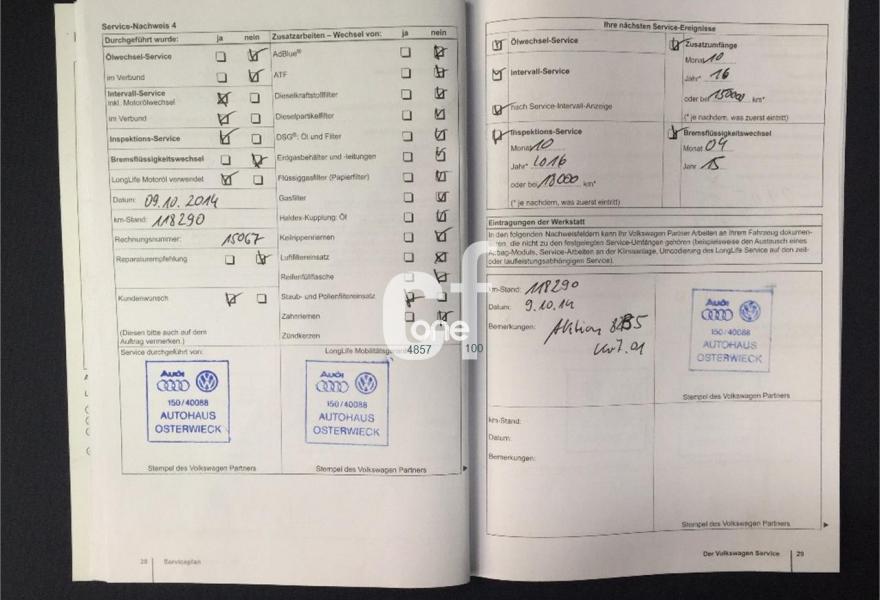 Service-Nachweis 4
Durchgeführt wurde: ja nein
Ölwechsel-Service
im Verbund
Intervall-Service
inkl. Motorölwechsel
im Verbund
Inspektions-Service
Bremsflüssigkeitswechsel
LongLife Motoröl verwendet
Datum: 09.10.2014
km-Stand: 118290
Rechnungsnummer: 15067
Reparaturempfehlung
Kundenwunsch
(Diesen bitte auch auf dem
Auftrag vermerken.)
Zusatzarbeiten – Wechsel von: ja nein
AdBlue®
ATF
Dieselkraftstofffilter
Dieselpartikelfilter
DSG®: Öl und Filter
Erdgasbehälter und -leitungen
Flüssiggasfilter (Papierfilter)
Gasfilter
Haldex-Kupplung: Öl
Keilrippenriemen
Luftfiltereinsatz
Reifenfüllflasche
Staub- und Pollenfiltereinsatz
Zahnriemen
Zündkerzen
Service durchgeführt von:
Audi
150/40088
AUTOHAUS
OSTERWIECK
Stempel des Volkswagen Partners
LongLife Mobilitätsgarantie
Audi
150/40088
AUTOHAUS
OSTERWIECK
Stempel des Volkswagen Partners
28 Serviceplan
Cf
one
4857 100
Ihre nächsten Service-Ereignisse
Ölwechsel-Service
Intervall-Service
nach Service-Intervall-Anzeige
Inspektions-Service
Monat 10
Jahr* 2016
oder bei km*
(* je nachdem, was zuerst eintritt)
Zusatzumfänge
Monat 10
Jahr* 16
oder bei 150000 km*
(* je nachdem, was zuerst eintritt)
Bremsflüssigkeitswechsel
Monat 04
Jahr 15
Eintragungen der Werkstatt
In den folgenden Nachweisfeldern kann Ihr Volkswagen Partner Arbeiten an Ihrem Fahrzeug dokumen-
tieren, die nicht zu den festgelegten Service-Umfängen gehören (beispielsweise den Austausch eines
Airbag-Moduls, Service-Arbeiten an der Klimaanlage, Umcodierung des LongLife Service auf den zeit-
oder laufleistungsabhängigen Service).
km-Stand: 118290
Datum: 9.10.14
Bemerkungen: Aktion
Audi
150/40088
AUTOHAUS
OSTERWIECK
Stempel des Volkswagen Partners
km-Stand:
Datum:
Bemerkungen:
Stempel des Volkswagen Partners
Der Volkswagen Service 29